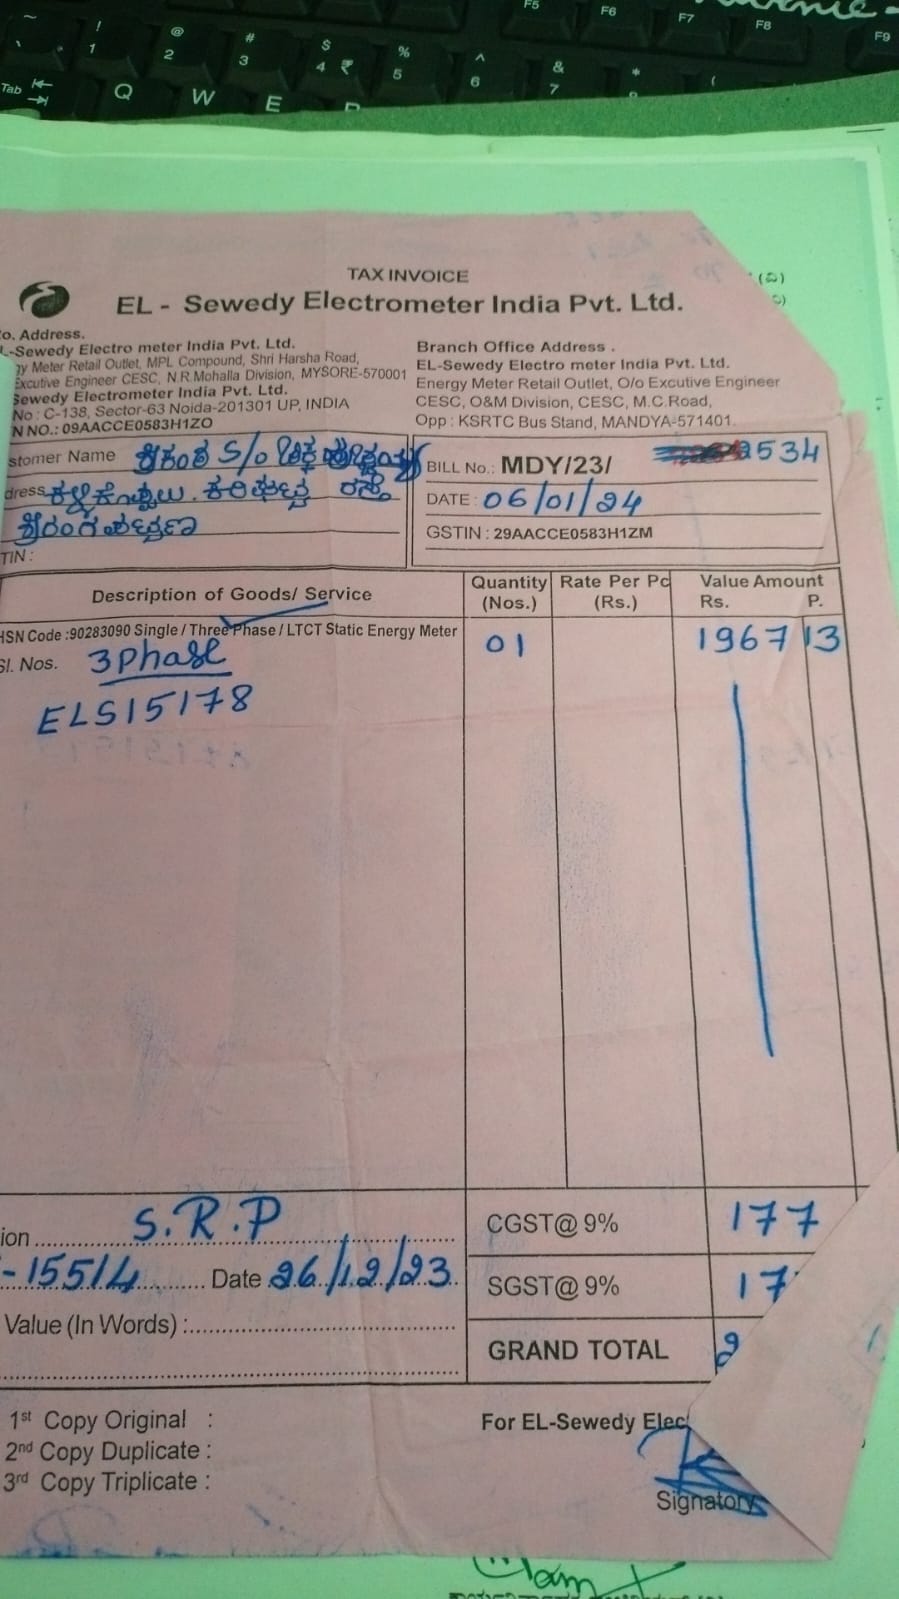 TAX INVOICE
EL - Sewedy Electrometer India Pvt. Ltd.
o. Address.
-Sewedy Electro meter India Pvt. Ltd.
gy Meter Retail Outlet, MPL Compound, Shri Harsha Road,
Excutive Engineer CESC, N.R.Mohalla Division, MYSORE-570001
Sewedy Electrometer India Pvt. Ltd.
No : C-138, Sector-63 Noida-201301 UP, INDIA
N NO.: 09AACCE0583H1ZO
Branch Office Address .
EL-Sewedy Electro meter India Pvt. Ltd.
Energy Meter Retail Outlet, O/o Excutive Engineer
CESC, O&M Division, CESC, M.C.Road,
Opp : KSRTC Bus Stand, MANDYA-571401.
stomer Name S/o
dress
TIN :
BILL No.: MDY/23/ 2534
DATE : 06/01/24
GSTIN : 29AACCE0583H1ZM
Description of Goods/ Service Quantity (Nos.) Rate Per Pc (Rs.) Value Amount Rs. P.
HSN Code :90283090 Single / Three Phase / LTCT Static Energy Meter 01 1967 13
Sl. Nos. 3 Phase
ELS15178
ion S.R.P CGST@ 9% 177
-15514 Date 26/12/23 SGST@ 9% 17
Value (In Words) :
GRAND TOTAL 2
1st Copy Original :
2nd Copy Duplicate :
3rd Copy Triplicate :
For EL-Sewedy Elec
Signatory
~
! 1
@ 2
# 3
$ 4 ₹
% 5
^ 6
& 7
*
(
F5 F6 F7 F8 F9
Tab Q W E